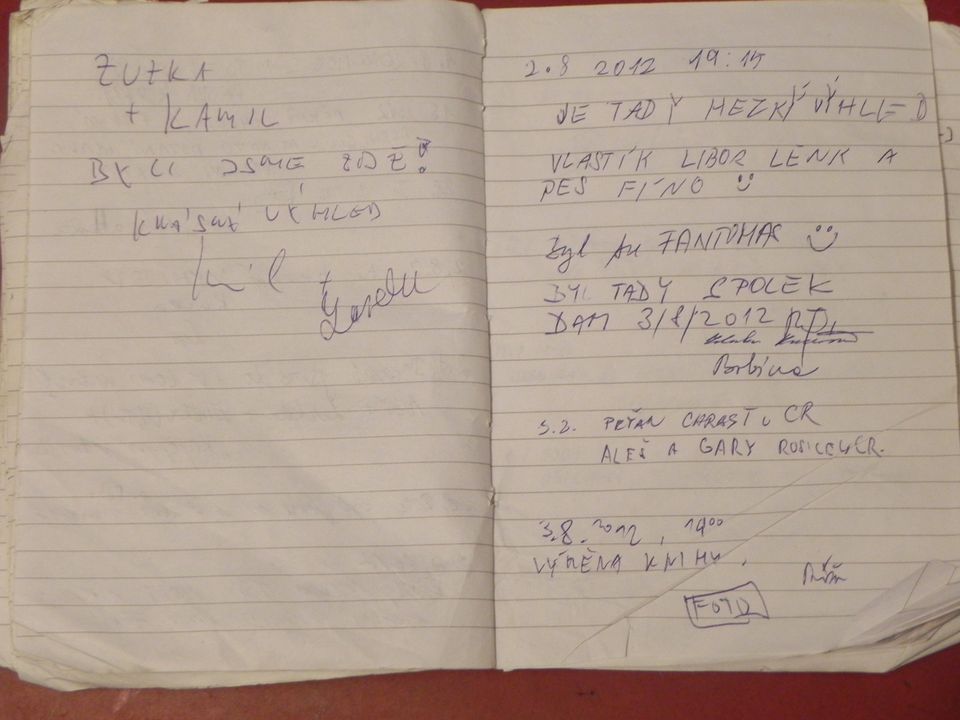 ZUZKA
+ KAMIL
BYLI JSME ZDE!
KRÁSNÝ VÝHLED
2.8 2012 19:15
JE TADY HEZKÝ VÝHLED
VLASTÍK LIBOR LENK A
PES FÍNO
Byl tu FANTOMAS
BYL TADY SPOLEK
DAM 3/8/2012
Bobina
ALEŠ A GARY
3.8.2012, 1400
VÝMĚNA KNIHY.
FOTO